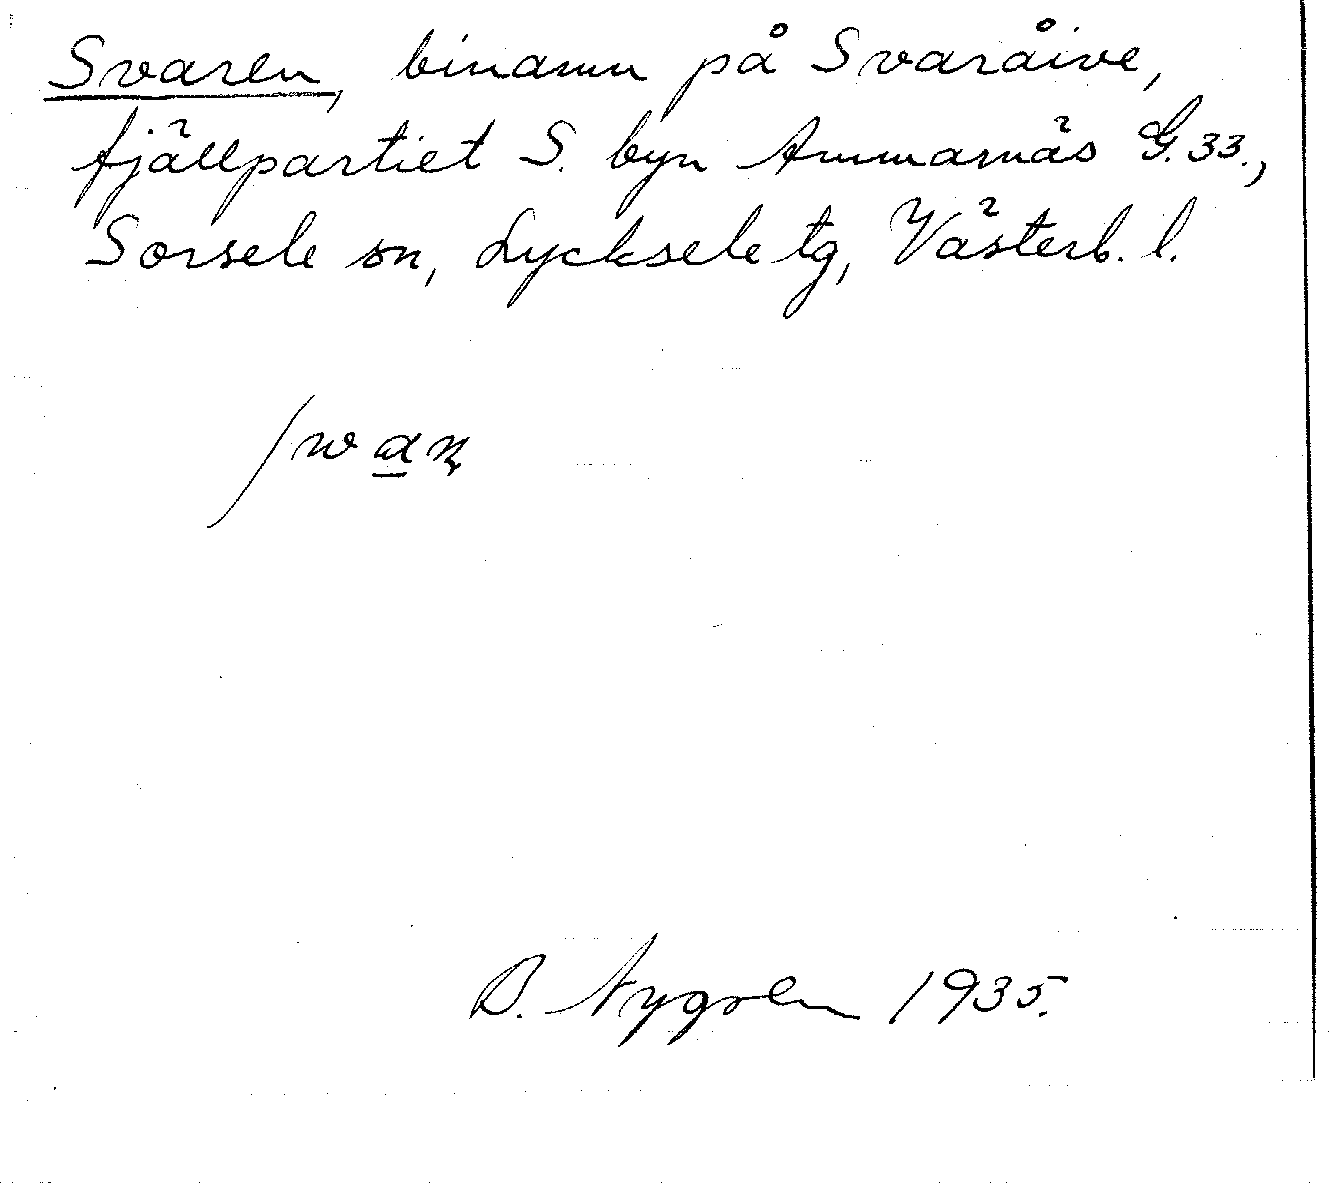 Svaren, binamn på Svaråive,
fjällpartiet S. byn Ammarnäs G. 33.,
Sorsele sn, Lycksele tg, Västerb. l.
B. Nygren 1935.